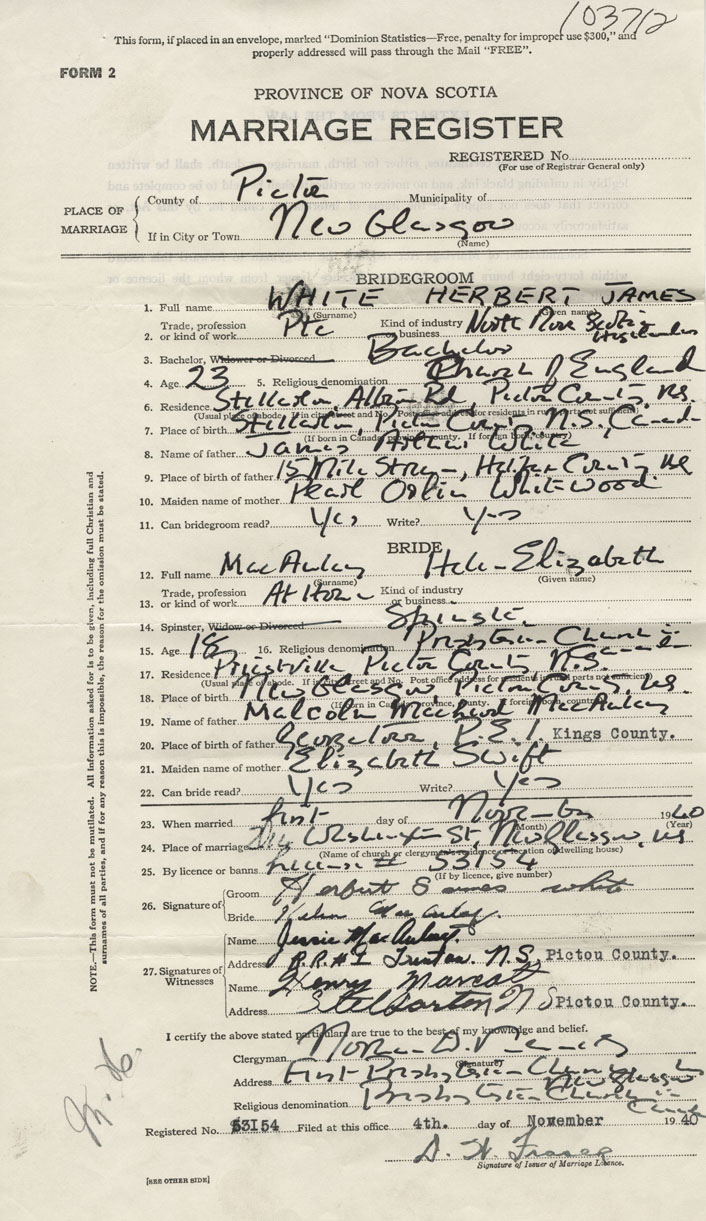 103712
This form, if placed in an envelope, marked "Dominion Statistics—Free, penalty for improper use $300," and
properly addressed will pass through the Mail "FREE".
FORM 2
PROVINCE OF NOVA SCOTIA
MARRIAGE REGISTER
REGISTERED No.
(For use of Registrar General only)
PLACE OF MARRIAGE
County of Pictou Municipality of
If in City or Town New Glasgow
(Name)
BRIDEGROOM
1. Full name WHITE HERBERT JAMES
(Surname) (Given name)
2. Trade, profession or kind of work Pte Kind of industry or business North Nova Scotia Highlanders
3. Bachelor, Widower or Divorced Bachelor
4. Age 23 5. Religious denomination Church of England
6. Residence Stellarton, Albion Rd, Pictou County, N.S.
(Usual place of abode. If in city street and No. Post office address for residents in rural parts not sufficient)
7. Place of birth Stellarton, Pictou County N.S. Canada
(If born in Canada, province, county. If foreign born, country)
8. Name of father James Arthur White
9. Place of birth of father 15 Mile Stream, Halifax County NS
10. Maiden name of mother Pearl Whitewood
11. Can bridegroom read? Yes Write? Yes
BRIDE
12. Full name MacAulay Helen Elizabeth
(Surname) (Given name)
13. Trade, profession or kind of work At Home Kind of industry or business
14. Spinster, Widow or Divorced Spinster
15. Age 18 16. Religious denomination Presbyterian Church in Canada
17. Residence Priestville Pictou County N.S.
(Usual place of abode. If in city street and No. Post office address for residents in rural parts not sufficient)
18. Place of birth New Glasgow, Pictou County, N.S.
(If born in Canada, Province, county. If foreign born, country)
19. Name of father Malcolm MacAulay
20. Place of birth of father Georgetown, P.E.I. Kings County.
21. Maiden name of mother Elizabeth Swift
22. Can bride read? Yes Write? Yes
23. When married first day of November 1940
(Month) (Year)
24. Place of marriage Washington St, New Glasgow, NS
(Name of church or clergyman's residence or location of dwelling house)
25. By licence or banns License # 53154
(If by licence, give number)
26. Signature of
Groom Herbert James White
Bride Helen MacAulay
27. Signatures of Witnesses
Name Jessie MacAulay.
Address R.R.#1 Trenton. N.S. Pictou County.
Name Henry
Address Stellarton N S Pictou County.
I certify the above stated particulars are true to the best of my knowledge and belief.
Clergyman
(Signature)
Address First Presbyterian Church New Glasgow NS
Religious denomination Presbyterian Church in Canada
Registered No. 53154 Filed at this office 4th. day of November 1940
D. W. Fraser
Signature of Issuer of Marriage Licence.
[SEE OTHER SIDE]
NOTE.—This form must not be mutilated. All information asked for is to be given, including full Christian and
surnames of all parties, and if for any reason this is impossible, the reason for the omission must be stated.